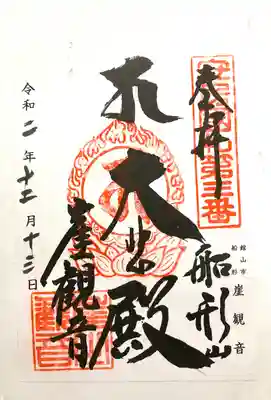 奉拝
第三番
船形山
館山市
船形
崖観音
大悲殿
崖觀音
令和二年十二月十三日